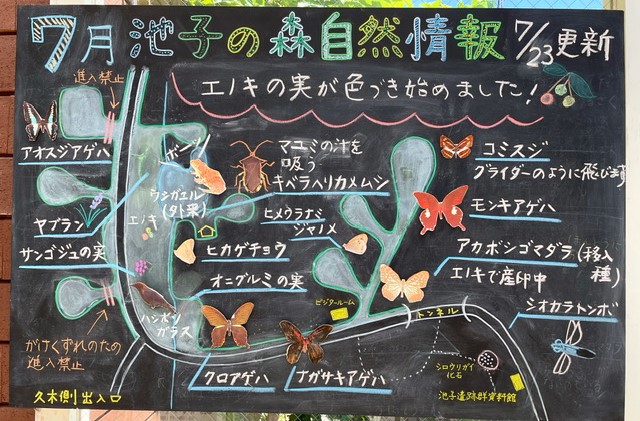 7月 池子の森自然情報 7/23更新
エノキの実が色づき始めました!
進入禁止
アオスジアゲハ
ボーン
ウシガエル
(外来)
マユミの汁を
吸う
キベラヘリカメムシ
コミスジ
グライダーのように飛びます
モンキアゲハ
ヤブラン
エノキ
ヒメウラナミ
ジャノメ
サンゴジュの実
ヒカゲチョウ
アカボシゴマダラ(移入種)
エノキで産卵中
オニグルミの実
シオカラトンボ
ハシボソ
ガラス
ビジタールーム
トンネル
がけくずれのため
進入禁止
クロアゲハ
ナガサキアゲハ
シロウリガイ
化石
池子遺跡群資料館
久木側出入口